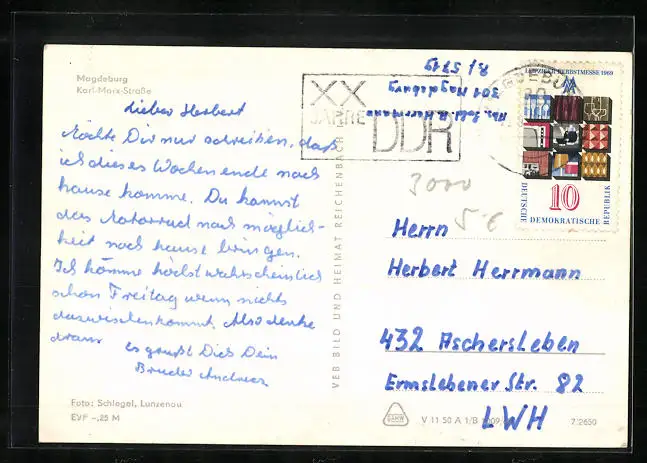 Magdeburg
Karl-Marx-Straße
Lieber Herbert
Möchte Dir nur schreiben, daß
ich dieses Wochenende nach
hause komme. Du kannst
das Motorrad nach möglich-
keit nach hause bringen.
Ich komme höchstwahrscheinlich
schon Freitag wenn nichts
dazwischenkommt. Also denke
dran
es grüßt Dich Dein
Bruder Andreas
Foto: Schlegel, Lunzenau
EVP -,25 M
VEB BILD UND HEIMAT REICHENBACH
XX
JAHRE
DDR
Herrmann
301 Magdeburg
LEIPZIGER HERBSTMESSE 1969
10
DEUTSCHE
DEMOKRATISCHE
REPUBLIK
3000
5 €
Herrn
Herbert Herrmann
432 Aschersleben
Ermslebener Str. 82
LWH
V 11 50 A 1/B
7.2650